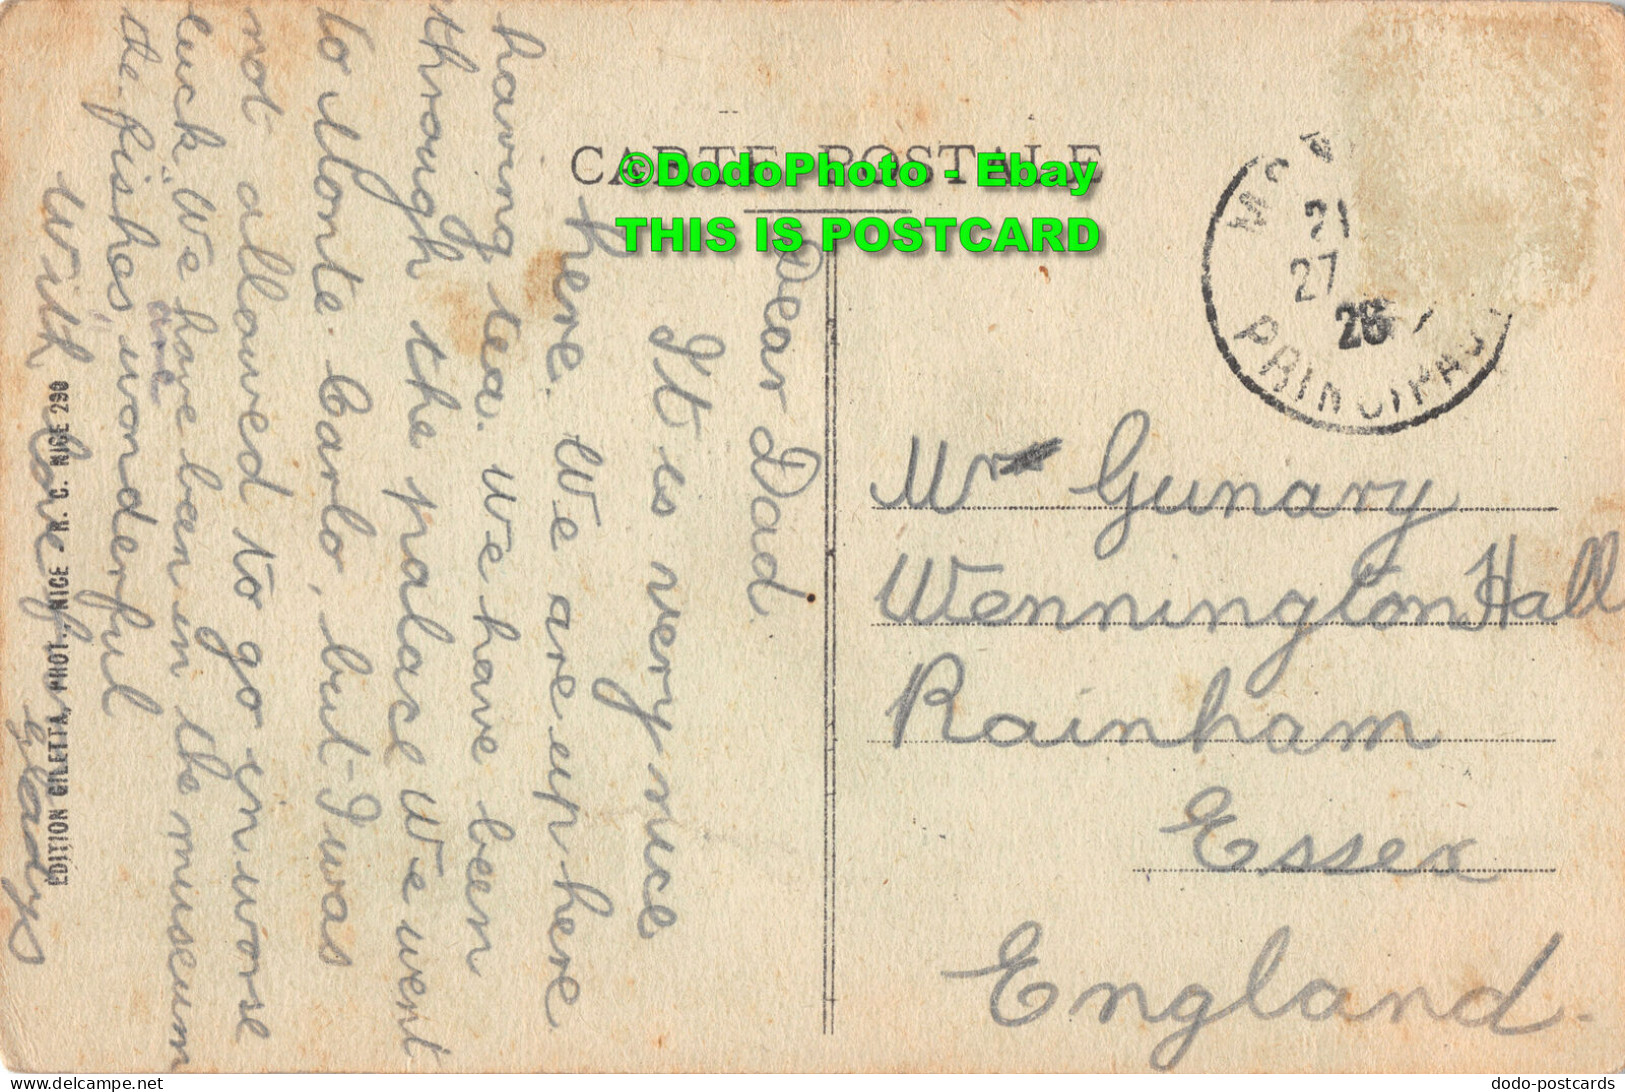 CARTE POSTALE
©DodoPhoto - Ebay
THIS IS POSTCARD
Dear Dad
It is very nice
here. We are up here
having tea. We have been
through the palace We went
to Monte-Carlo, but I was
not allowed to go in worse
luck". We have ban in the museum
the fishes are wonderful
With love from
Gladys
EDITION GILETTA, PHOT., NICE - R. C. NICE 290
21
27
28
PRINCIPAU
Mr Gunary
Wennington Hall
Rainham
Essex
England.
delcampe.net
dodo-postcards